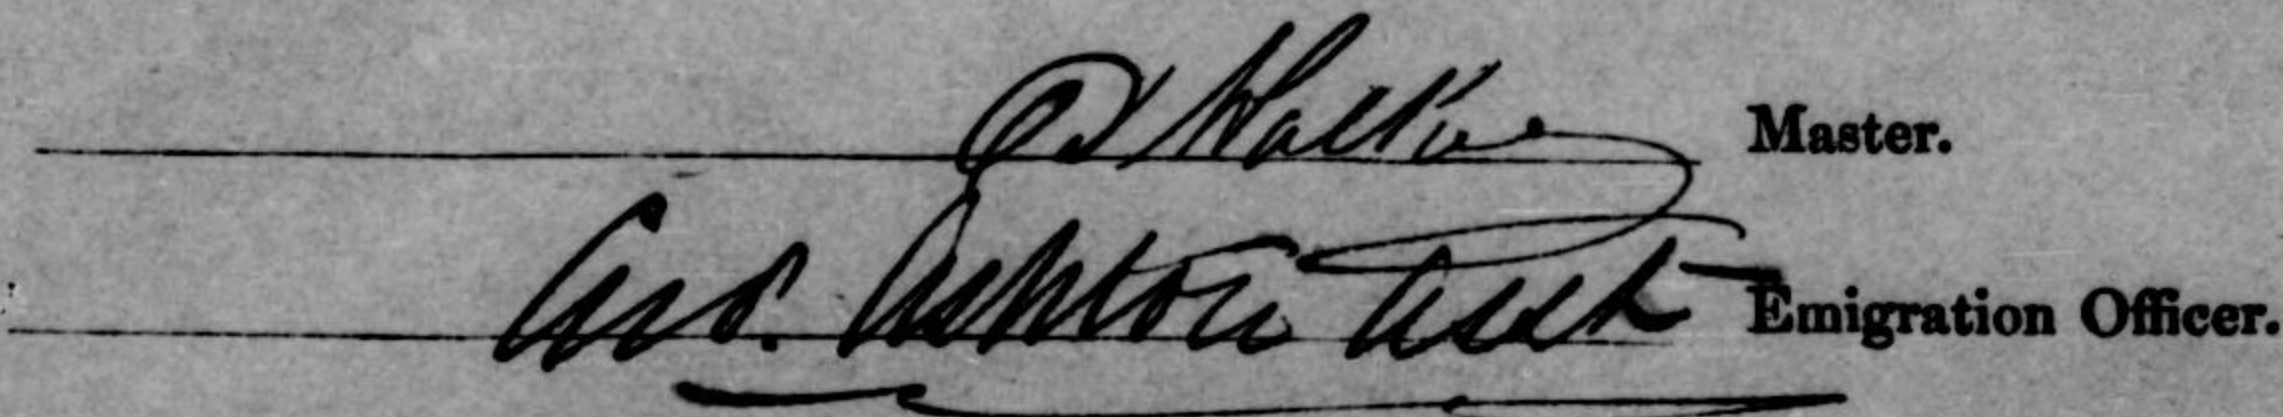 Walker Master.
Ashton Asst Emigration Officer.